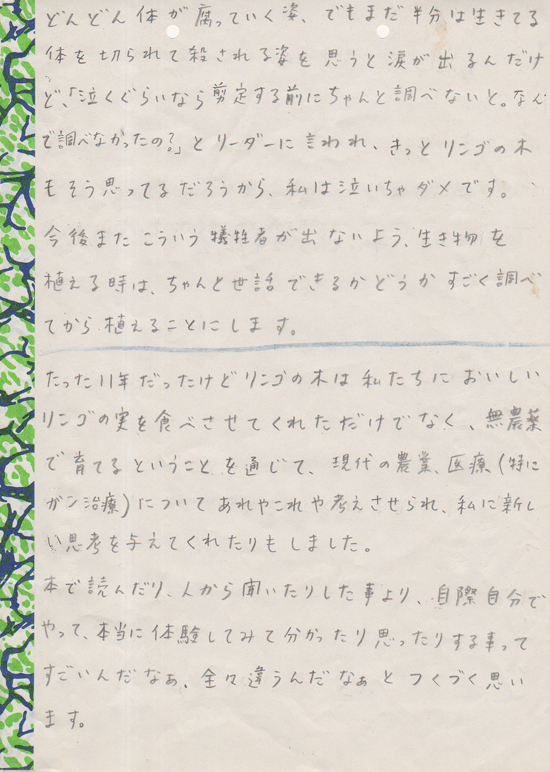 どんどん体が腐っていく姿、でもまだ半分は生きてる
体を切られて殺される姿を思うと涙が出るんだけ
ど、「泣くぐらいなら剪定する前にちゃんと調べないと。なん
で調べなかったの?」とリーダーに言われ、きっとリンゴの木
もそう思ってるだろうから、私は泣いちゃダメです。
今後またこういう犠牲者が出ないよう、生き物を
植える時は、ちゃんと世話できるかどうかすごく調べ
てから植えることにします。
たった11年だったけどリンゴの木は私たちにおいしい
リンゴの実を食べさせてくれただけでなく、無農薬
で育てるということを通じて、現代の農業、医療(特に
ガン治療)についてあれやこれや考えさせられ、私に新し
い思考を与えてくれたりもしました。
本で読んだり、人から聞いたりした事より、自際自分で
やって、本当に体験してみて分かったり思ったりする事って
すごいんだなぁ、全々違うんだなぁとつくづく思い
ます。